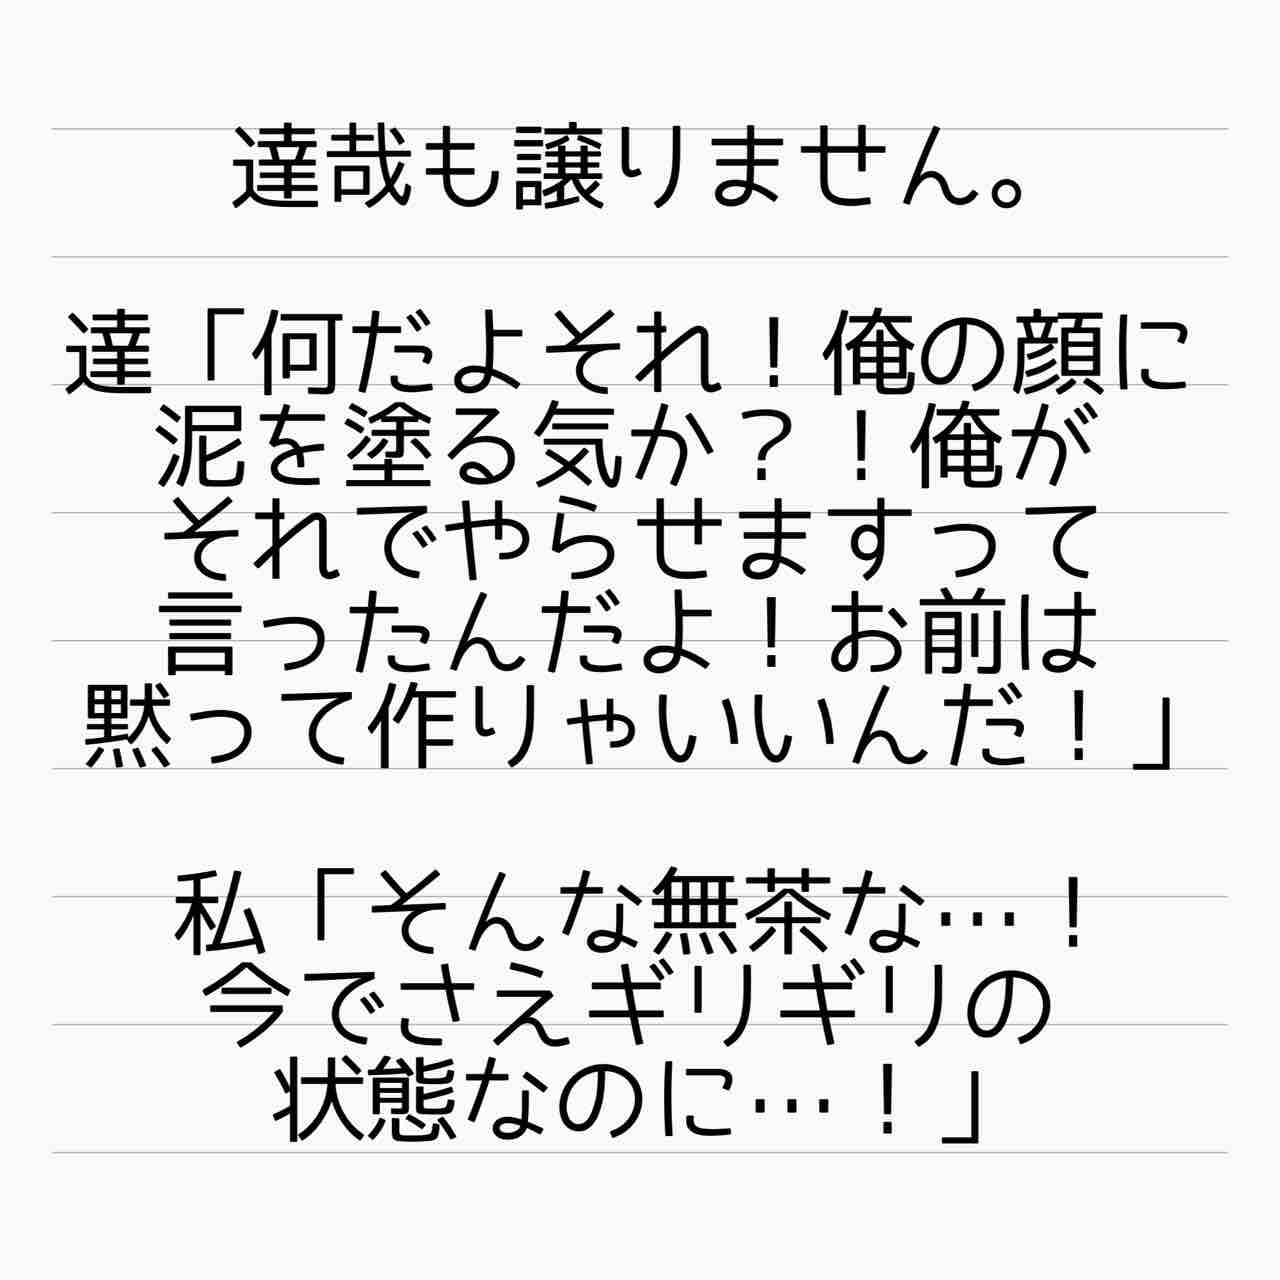 達哉も譲りません。
達「何だよそれ！俺の顔に
泥を塗る気か？！俺が
それでやらせますって
言ったんだよ！お前は
黙って作りゃいいんだ！」
私「そんな無茶な…！
今でさえギリギリの
状態なのに…！」